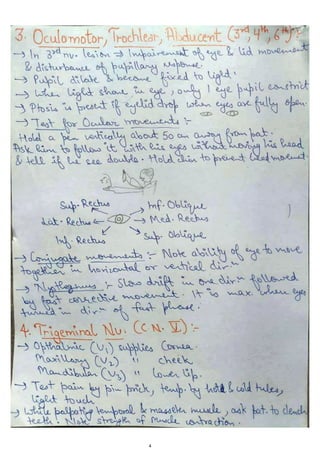 3. Oculomotor, Trochlear, Abducent (3rd, 4th, 6th) :-
→ In 3rd nv. lesion → Impairement of eye & lid movement
& disturbance of pupillary response.
→ Pupil dilate & become fixed to light.
→ When light shone in eye, only 1 eye pupil constrict
→ Ptosis is present if eyelid drop when eyes are fully open.
→ Test for Ocular movements :-
Hold a pen vertically about 50 cm away from pat.
Ask him to follow it with his eyes without moving his head
& tell if he see double. Hold chin to prevent head movemet.
Sup. Rectus Inf. Oblique
Lat. Rectus Med. Rectus
Inf. Rectus Sup. Oblique
→ Conjugate movements :- Note ability of eye to move
together in horizontal or vertical dirn
→ Nystagmus :- Slow drift in one dirn followed
by fast corrective movement. It is max. when eyes
turned in dirn of fast phase.
4. Trigeminal Nv. (C N. V) :-
→ Opthalmic (V1) supplies Cornea.
Maxillary (V2) " cheek
Mandibular (V3) " lower lip.
→ Test pain by pin prick, temp. by hot & cold tubes,
light touch
→ While palpating temporal & masseter muscle, ask pat. to clench
teeth. Note strength of muscle contraction.
4